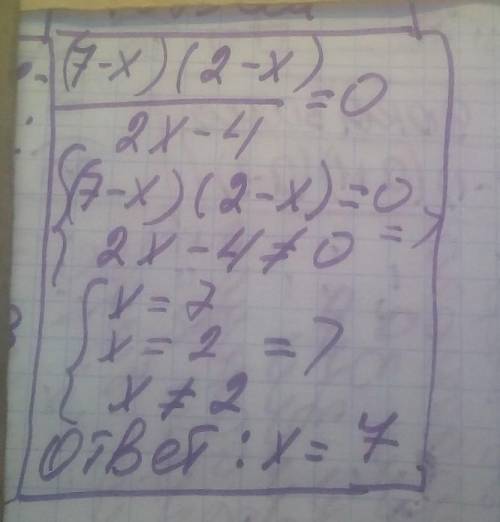 (7-x)(2-x)
2x-4
=0
(7-x)(2-x)=0
2x-4≠0 =>
x=7
x=2 =>
x≠2
Ответ: x=7